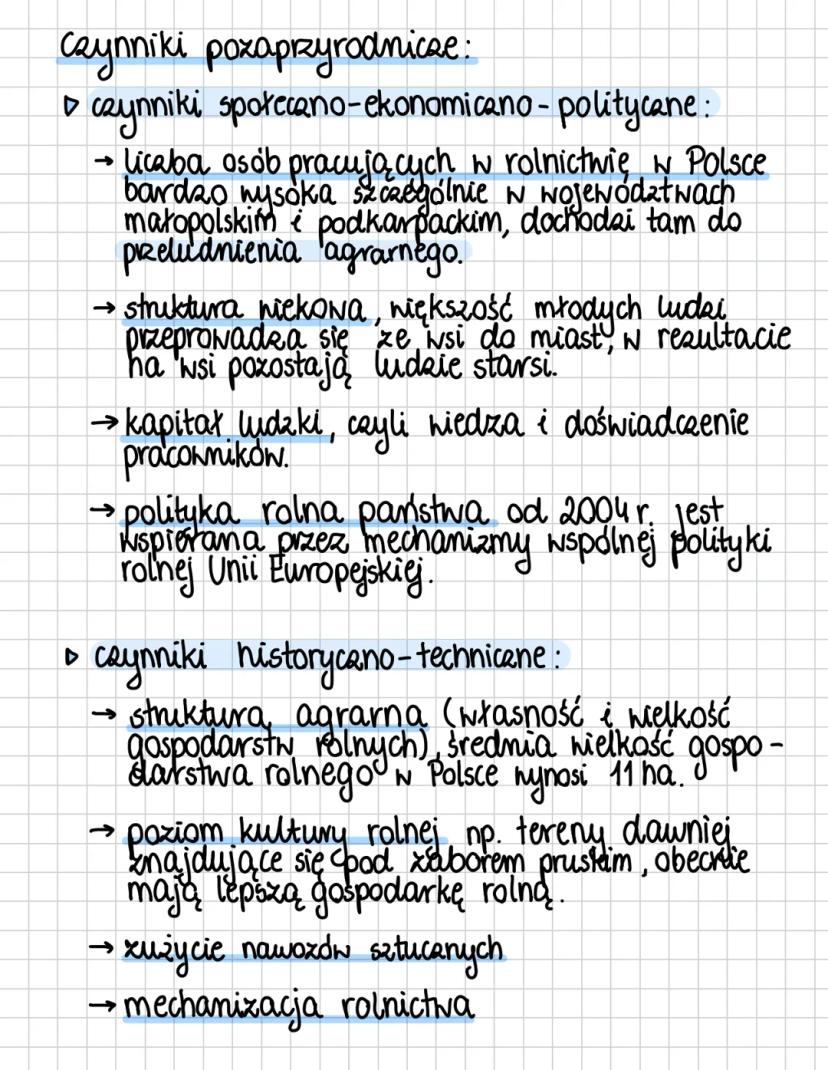 Czynniki pozaprzyrodnicze:
▷ czynniki społeczno-ekonomiczno-polityczne:
→ liczba osób pracujących w rolnictwie w Polsce
bardzo wysoka szczególnie w województwach
małopolskim i podkarpackim, dochodzi tam do
przeludnienia agrarnego.
→ struktura wiekowa, większość młodych ludzi
przeprowadza się ze wsi do miast, w rezultacie
na wsi pozostają ludzie starsi.
→ kapitał ludzki, czyli wiedza i doświadczenie
pracowników.
→ polityka rolna państwa od 2004 r. jest
wspierana przez mechanizmy wspólnej polityki
rolnej Unii Europejskiej.
▷ czynniki historyczno-techniczne:
→ struktura agrarna (własność i wielkość
gospodarstw rolnych), średnia wielkość gospo-
darstwa rolnego w Polsce wynosi 11 ha.
→ poziom kultury rolnej np. tereny dawniej
znajdujące się pod zaborem pruskim, obecnie
mają lepszą gospodarkę rolną.
→ zużycie nawozów sztucznych
→ mechanizacja rolnictwa